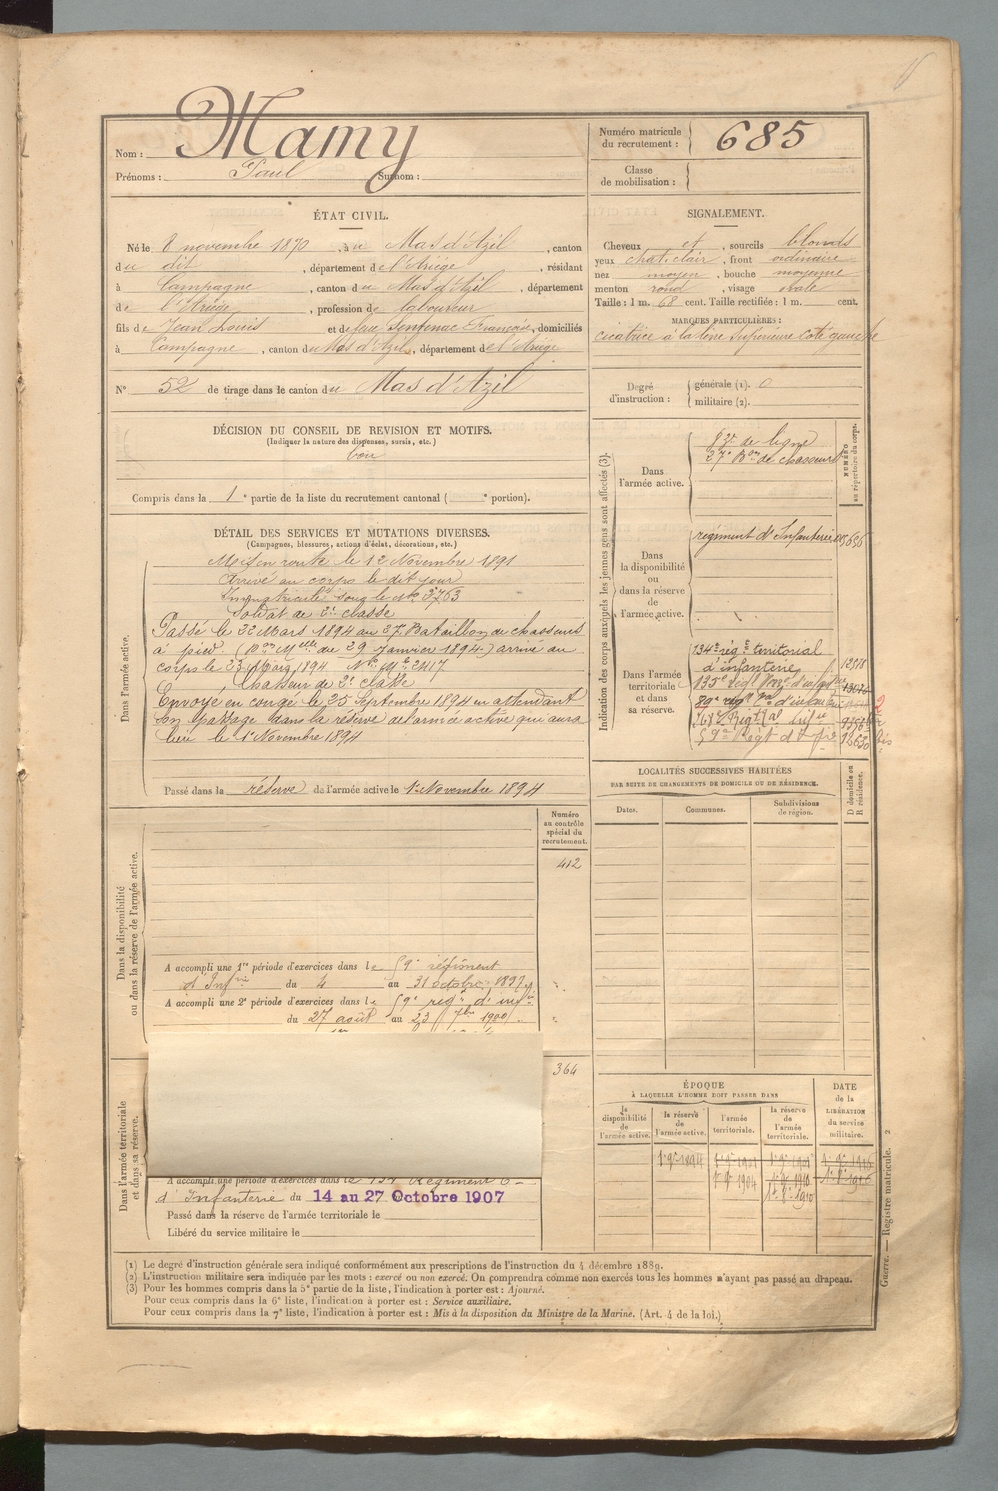 Nom : Mamy
Prénoms : Paul Surnom :
Numéro matricule du recrutement : 685
Classe de mobilisation :
ÉTAT CIVIL.
Né le 8 novembre 1870, à u Mas d'Azil, canton
du dit, département de l'Ariège, résidant
à Campagne, canton du Mas d'Azil, département
de l'Ariège, profession de laboureur
fils de Jean Louis et de feue Sentenac Françoise, domiciliés
à Campagne, canton du Mas d'Azil, département de l'Ariège
N° 52 de tirage dans le canton du Mas d'Azil
SIGNALEMENT.
Cheveux et, sourcils blonds
yeux chat. clair, front ordinaire
nez moyen, bouche moyenne
menton rond, visage ovale
Taille : 1 m. 68 cent. Taille rectifiée : 1 m. cent.
MARQUES PARTICULIÈRES :
cicatrice à la lèvre supérieure coté gauche
Degré d'instruction : générale (1). 0
militaire (2).
DÉCISION DU CONSEIL DE REVISION ET MOTIFS.
(Indiquer la nature des dispenses, sursis, etc.)
bon
Compris dans la 1e partie de la liste du recrutement cantonal ( e portion).
DÉTAIL DES SERVICES ET MUTATIONS DIVERSES.
(Campagnes, blessures, actions d'éclat, décorations, etc.)
Dans l'armée active.
Mis en route le 12 Novembre 1891
Arrivé au corps le dit jour
Immatriculé sous le No 3763
Soldat de 2e classe
Passé le 23 Mars 1894 au 27e Bataillon de chasseurs
à pied. (Don Melle du 29 Janvier 1894) arrivé au
corps le 23 Mars 1894 No Mle 2417
Chasseur de 2e classe
Envoyé en congé le 25 Septembre 1894 en attendant
son passage dans la réserve de l'armée active qui aura
lieu le 1er Novembre 1894
Passé dans la réserve de l'armée active le 1er Novembre 1894
Indication des corps auxquels les jeunes gens sont affectés (3).
NUMÉRO au répertoire du corps.
Dans l'armée active.
de ligne
27e Bon de chasseurs
Dans la disponibilité ou dans la réserve de l'armée active.
régiment d'Infanterie
Dans l'armée territoriale et dans sa réserve.
134e rég t territorial
d'infanterie
LOCALITÉS SUCCESSIVES HABITÉES
PAR SUITE DE CHANGEMENTS DE DOMICILE OU DE RÉSIDENCE.
Dates. Communes. Subdivisions de région. D domicile ou R résidence.
Dans la disponibilité ou dans la réserve de l'armée active.
Numéro au contrôle spécial du recrutement.
412
A accompli une 1re période d'exercices dans le 59e régiment
d'Infrie du 4 au 31 octobre 1897
A accompli une 2e période d'exercices dans le 59e régt d'infie
du 27 août au 23 7bre 1900
Dans l'armée territoriale et dans sa réserve.
364
A accompli une période d'exercices dans le 134 Régiment
d'Infanterie du 14 au 27 Octobre 1907
Passé dans la réserve de l'armée territoriale le
Libéré du service militaire le
ÉPOQUE
À LAQUELLE L'HOMME DOIT PASSER DANS
la disponibilité de l'armée active. la réserve de l'armée active. l'armée territoriale. la réserve de l'armée territoriale.
DATE de la LIBÉRATION du service militaire.
(1) Le degré d'instruction générale sera indiqué conformément aux prescriptions de l'instruction du 4 décembre 1889.
(2) L'instruction militaire sera indiquée par les mots : exercé ou non exercé. On comprendra comme non exercés tous les hommes n'ayant pas passé au drapeau.
(3) Pour les hommes compris dans la 5e partie de la liste, l'indication à porter est : Ajourné.
Pour ceux compris dans la 6e liste, l'indication à porter est : Service auxiliaire.
Pour ceux compris dans la 7e liste, l'indication à porter est : Mis à la disposition du Ministre de la Marine. (Art. 4 de la loi.)
Guerre. — Registre matricule. 2